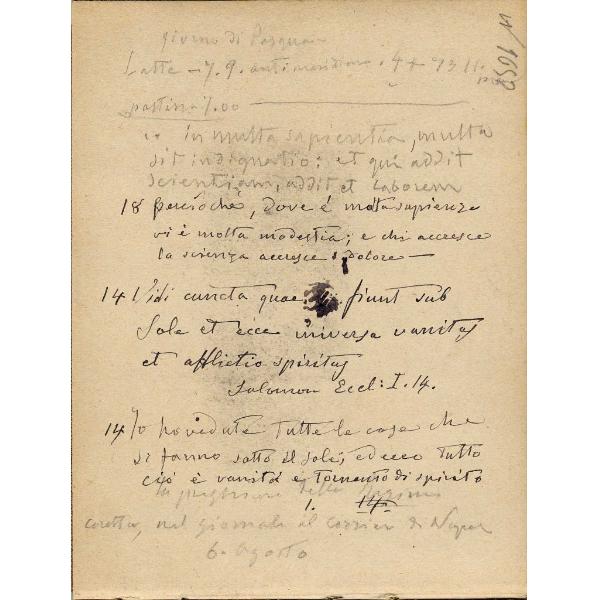 giorno di Pasqua
Latte - 7. 9. antimeridiane. 4 + 93
pastina 1.00
in multa sapientia, multa
sit indignatio: et qui addit
scientiam, addit et laborem
18 perciochè, dove é molta sapienza
vi è molta modestia; e chi accresce
la scienza accresce il dolore —
14 Vidi cuncta quae fiunt sub
Sole et ecce universa vanitas
et afflictio spiritus
Salomon Eccl: I. 14.
14 Io ho vedute tutte le cose che
si fanno sotto il sole; ed ecco tutto
ciò è vanità e tormento di spirito
1. 14.
nel giornale il corrier di Napoli
6. Agosto